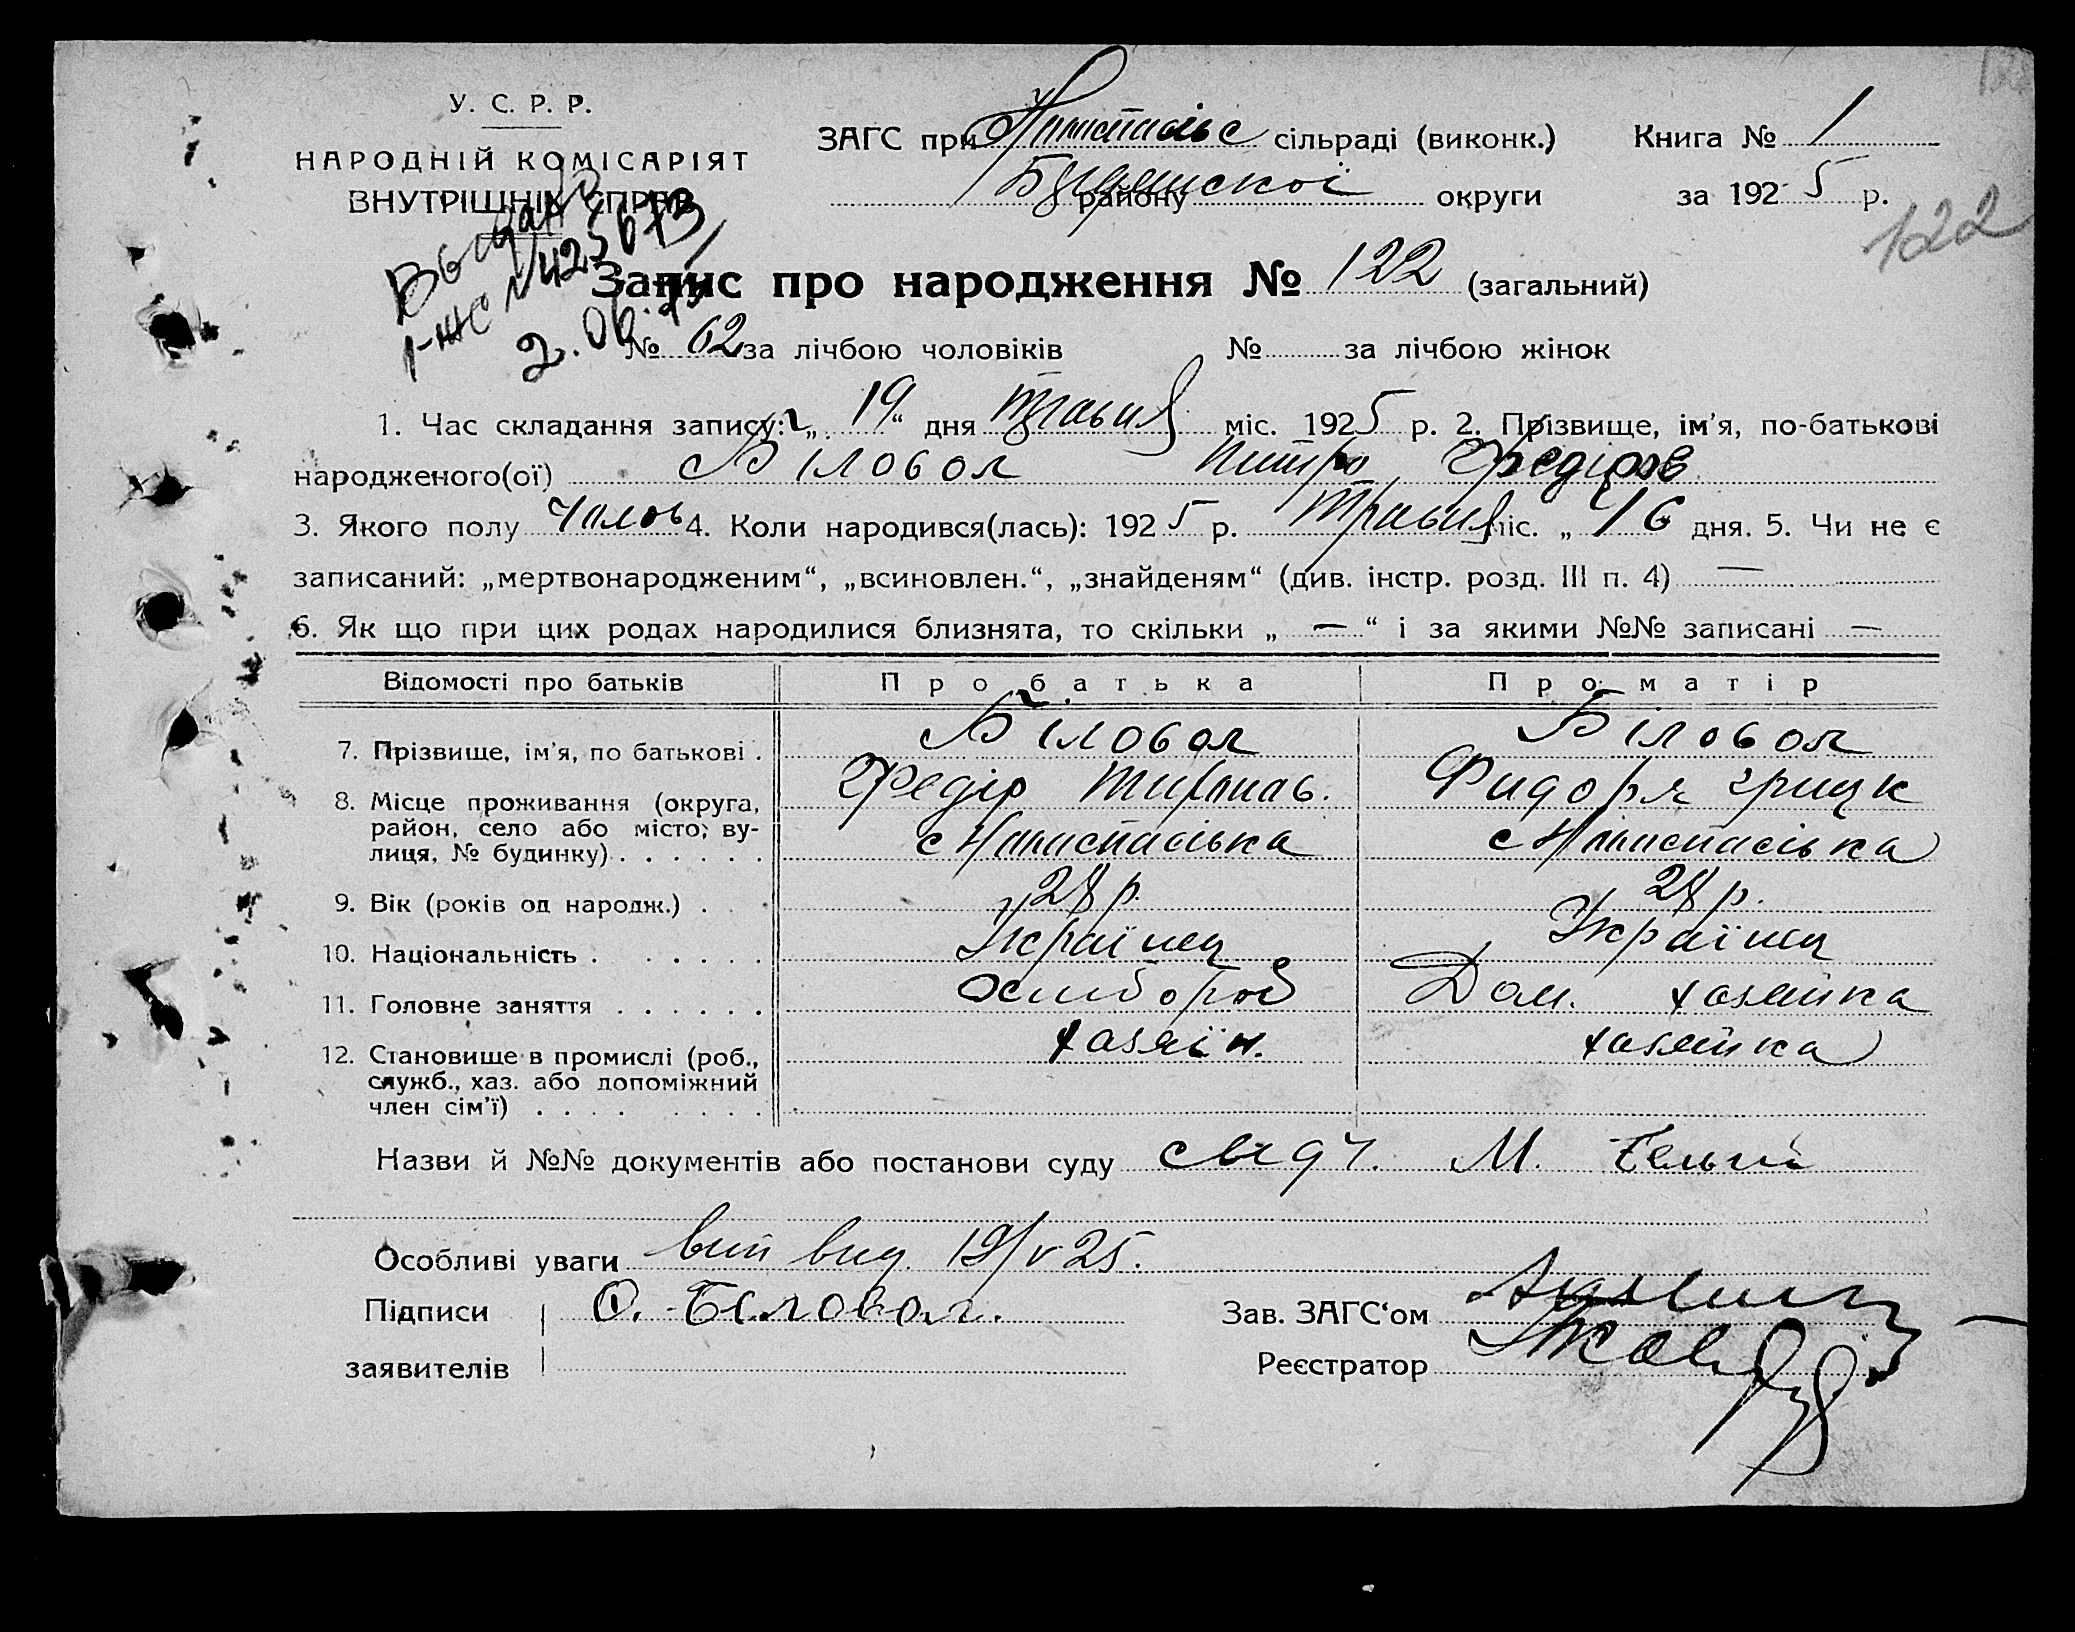 У. С. Р. Р.
НАРОДНІЙ КОМІСАРІЯТ
ВНУТРІШНІХ СПРАВ
ЗАГС при сільраді (виконк.) Книга № 1
району округи за 1925 р.
122
Запис про народження № 122 (загальний)
№ 62 за лічбою чоловіків № за лічбою жінок
1. Час складання запису: „ 19 “ дня Травня міс. 1925 р. 2. Прізвище, ім'я, по-батькові
народженого(ої) Біловол Петро Федіров
3. Якого полу Чолов 4. Коли народився(лась): 1925 р. Травня міс. „ 16 дня. 5. Чи не є
записаний: „мертвонародженим“, „всиновлен.“, „знайденям“ (див. інстр. розд. III п. 4) —
6. Як що при цих родах народилися близнята, то скільки „ — “ і за якими №№ записані —
Відомості про батьків Про батька Про матір
7. Прізвище, ім'я, по батькові . Біловол Біловол
Федір
8. Місце проживання (округа,
район, село або місто, ву-
лиця, № будинку) . . . . . .
9. Вік (років од народж.) . 28 р. 28 р.
10. Національність . . . . . . Українец Українец
11. Головне заняття . . . . . . Хлібороб Дом. хазяйка
12. Становище в промислі (роб., хазяїн. хазяйка
служб., хаз. або допоміжний
член сім'ї) . . . .
Назви й №№ документів або постанови суду М.
Особливі уваги вип вид. 19/V 25.
Підписи Біловол. Зав. ЗАГС‘ом
заявителів Реєстратор